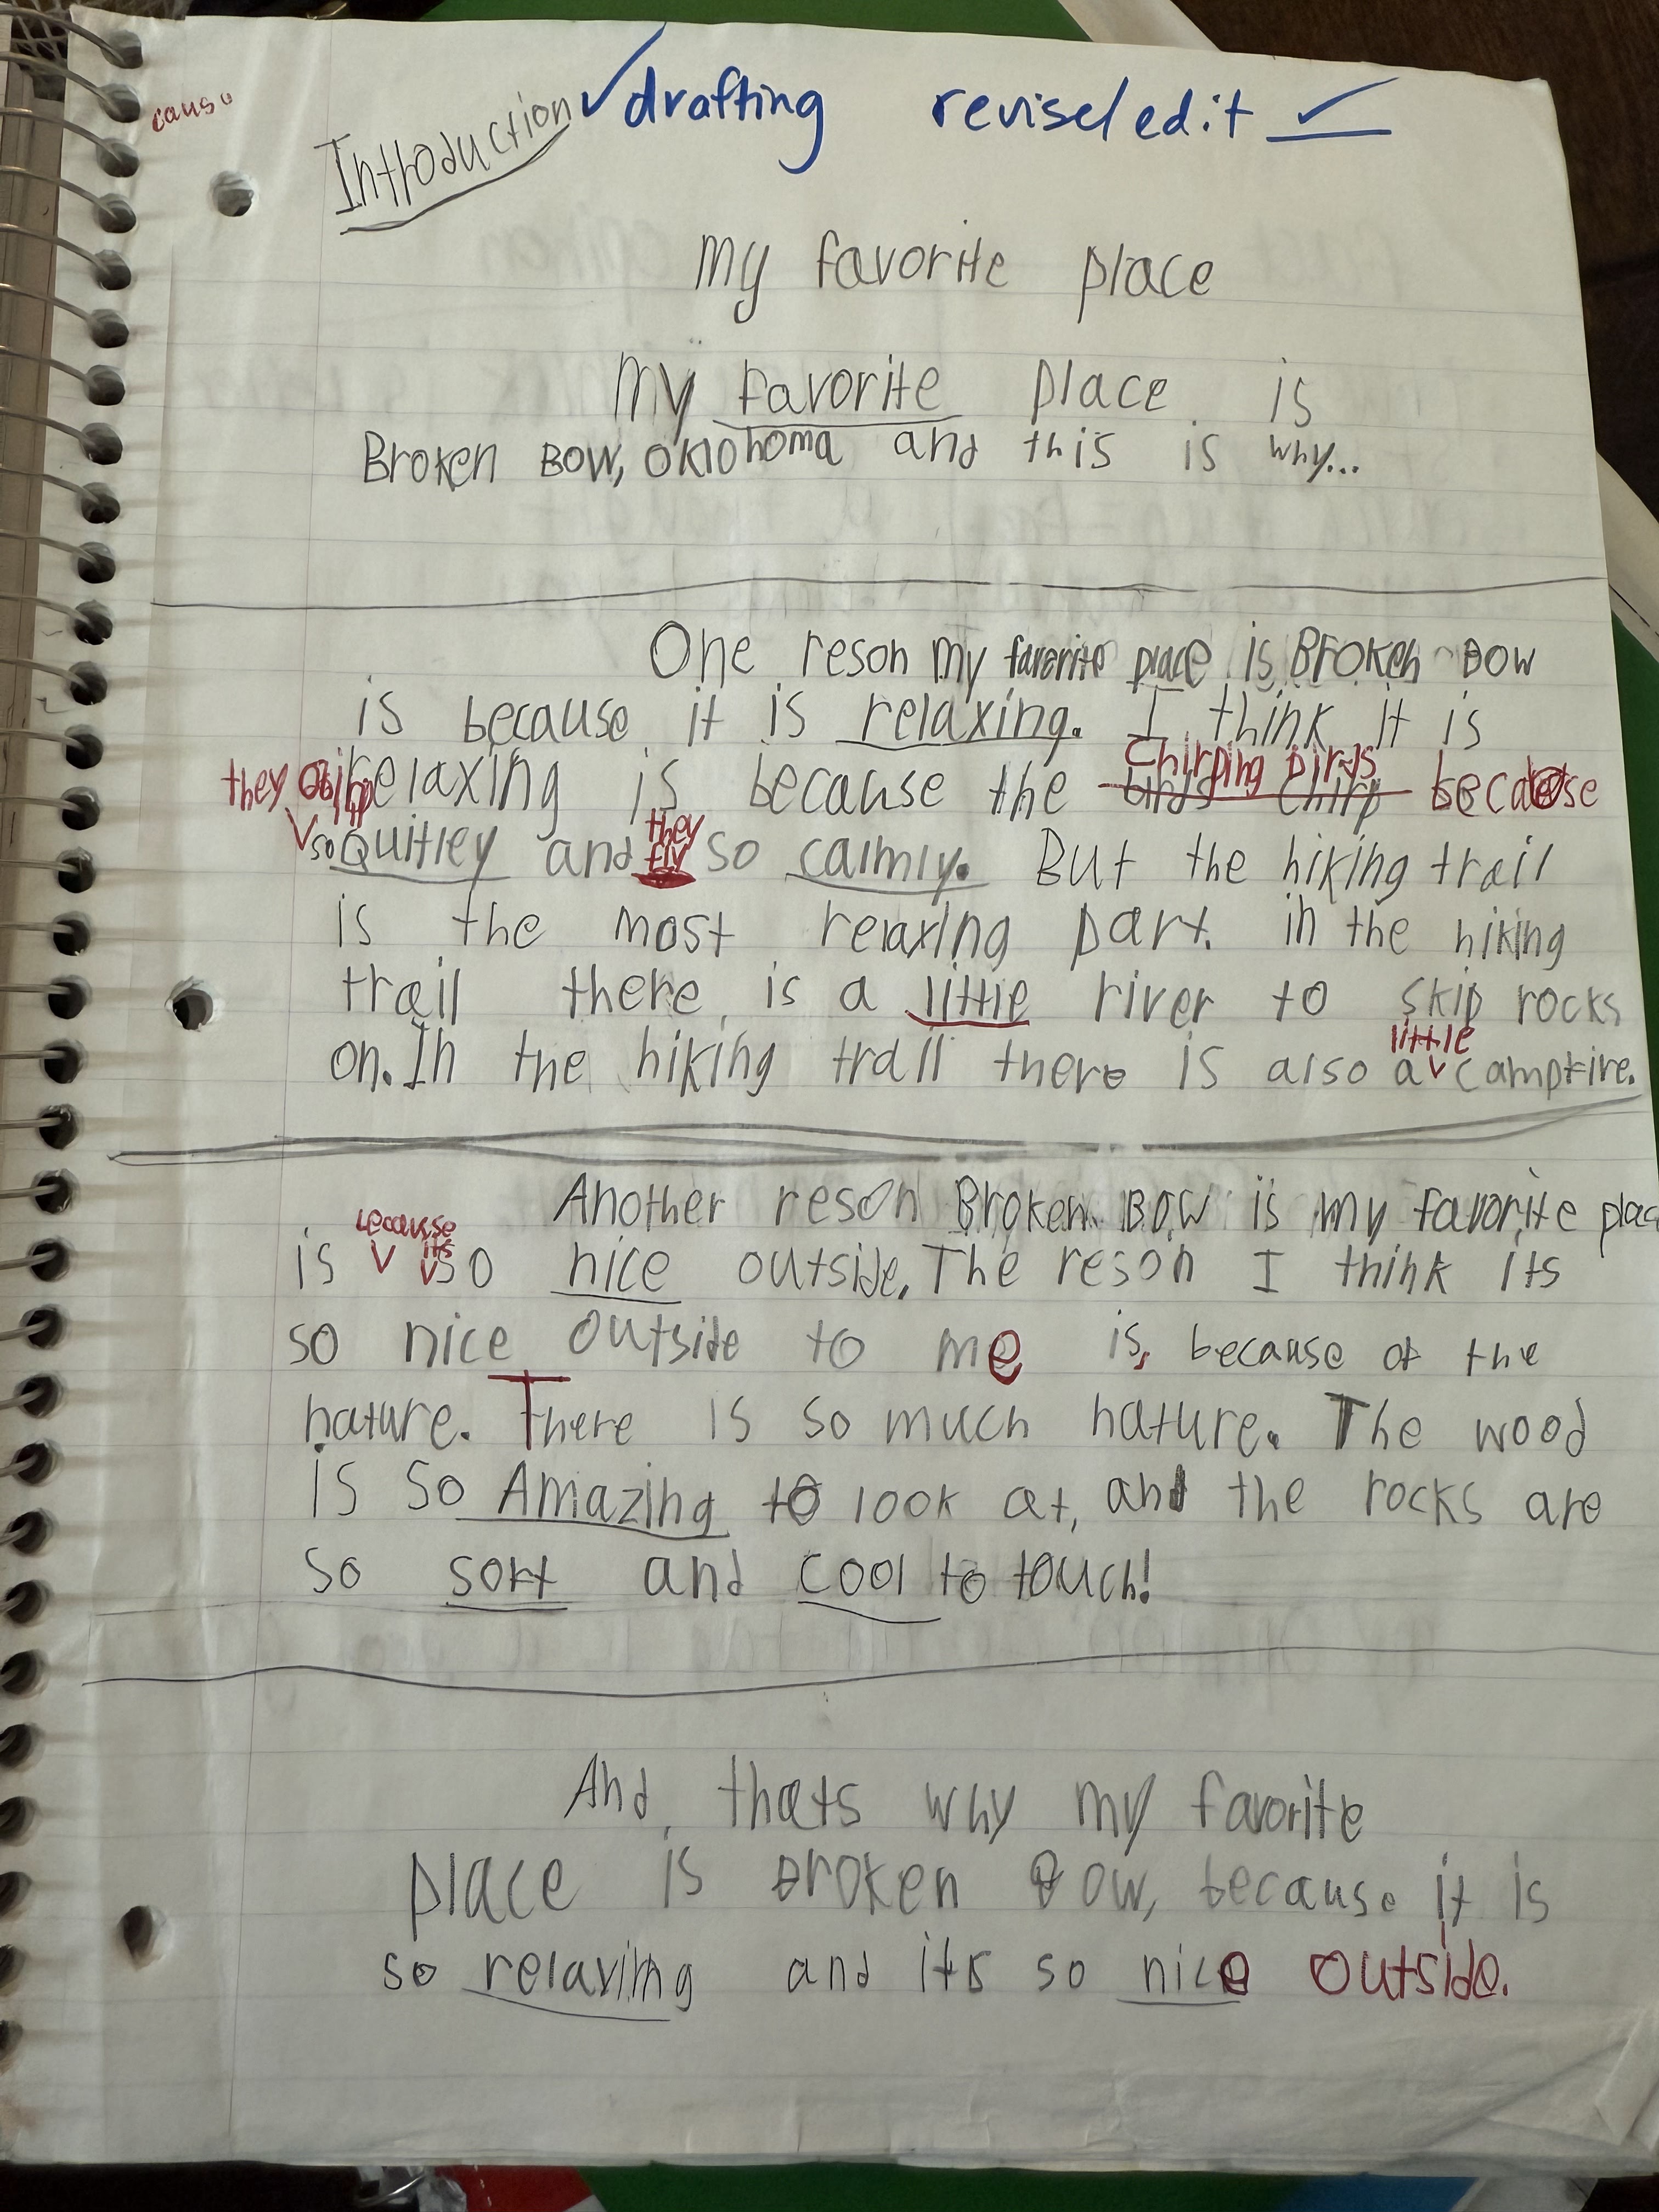 cause
Introduction ✓drafting revise/edit ✓
My favorite place
My favorite place is
Broken Bow, Oklohoma and this is why...
One reson my favorite place is Broken Bow
is because it is relaxing. I think it is
relaxing is because the birds chirp chirping birds because
they chirp so Quitley and they fly so calmly. But the hiking trail
is the most relaxing part. in the hiking
trail there is a little river to skip rocks
on. In the hiking trail there is also a little campfire.
Another reson Broken Bow is my favorite plac
is because its so nice outside. The reson I think its
so nice outside to me is, because of the
nature. There is so much nature. The wood
is so Amazing to look at, and the rocks are
so soft and cool to touch!
And thats why my favorite
place is Broken Bow, because it is
so relaxing and its so nice outside.